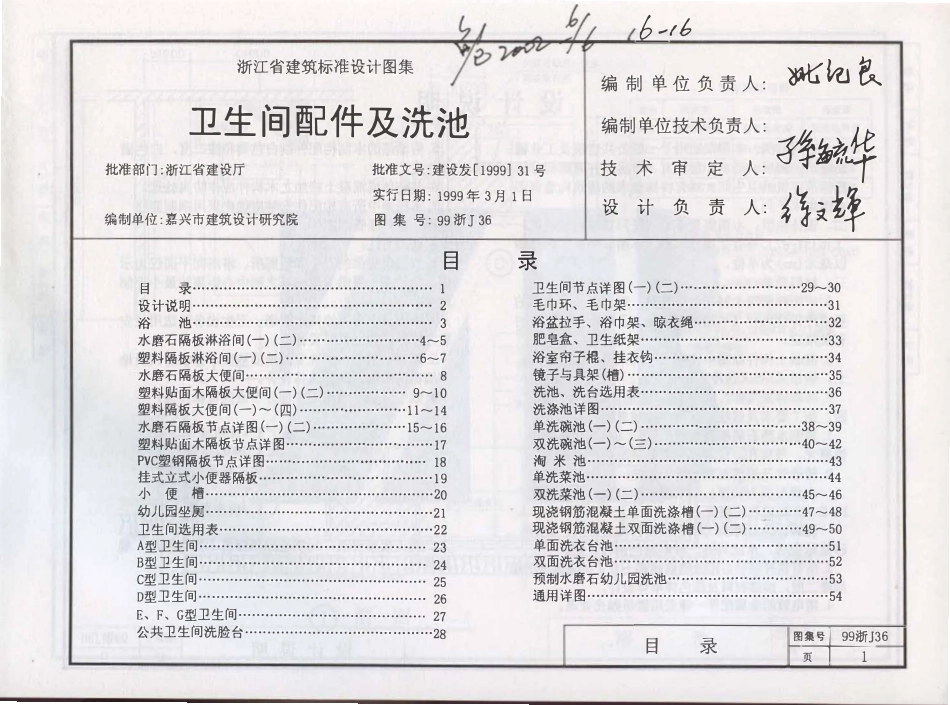 2002 6/6 16-16
浙江省建筑标准设计图集
卫生间配件及洗池
批准部门:浙江省建设厅 批准文号:建设发[1999]31号
实行日期:1999年3月1日
编制单位:嘉兴市建筑设计研究院 图集号:99浙J36
编制单位负责人:
编制单位技术负责人:
技术审定人:
设计负责人: 徐文辉
目 录
目 录………1
设计说明………2
浴 池………3
水磨石隔板淋浴间(一)(二)………4～5
塑料隔板淋浴间(一)(二)………6～7
水磨石隔板大便间………8
塑料贴面木隔板大便间(一)(二)………9～10
塑料隔板大便间(一)～(四)………11～14
水磨石隔板节点详图(一)(二)………15～16
塑料贴面木隔板节点详图………17
PVC塑钢隔板节点详图………18
挂式立式小便器隔板………19
小 便 槽………20
幼儿园坐厕………21
卫生间选用表………22
A型卫生间………23
B型卫生间………24
C型卫生间………25
D型卫生间………26
E、F、G型卫生间………27
公共卫生间洗脸台………28
卫生间节点详图(一)(二)………29～30
毛巾环、毛巾架………31
浴盆拉手、浴巾架、晾衣绳………32
肥皂盒、卫生纸架………33
浴室帘子棍、挂衣钩………34
镜子与具架(槽)………35
洗池、洗台选用表………36
洗涤池详图………37
单洗碗池(一)(二)………38～39
双洗碗池(一)～(三)………40～42
淘 米 池………43
单洗菜池………44
双洗菜池(一)(二)………45～46
现浇钢筋混凝土单面洗涤槽(一)(二)………47～48
现浇钢筋混凝土双面洗涤槽(一)(二)………49～50
单面洗衣台池………51
双面洗衣台池………52
预制水磨石幼儿园洗池………53
通用详图………54
目 录 图集号 99浙J36
页 1